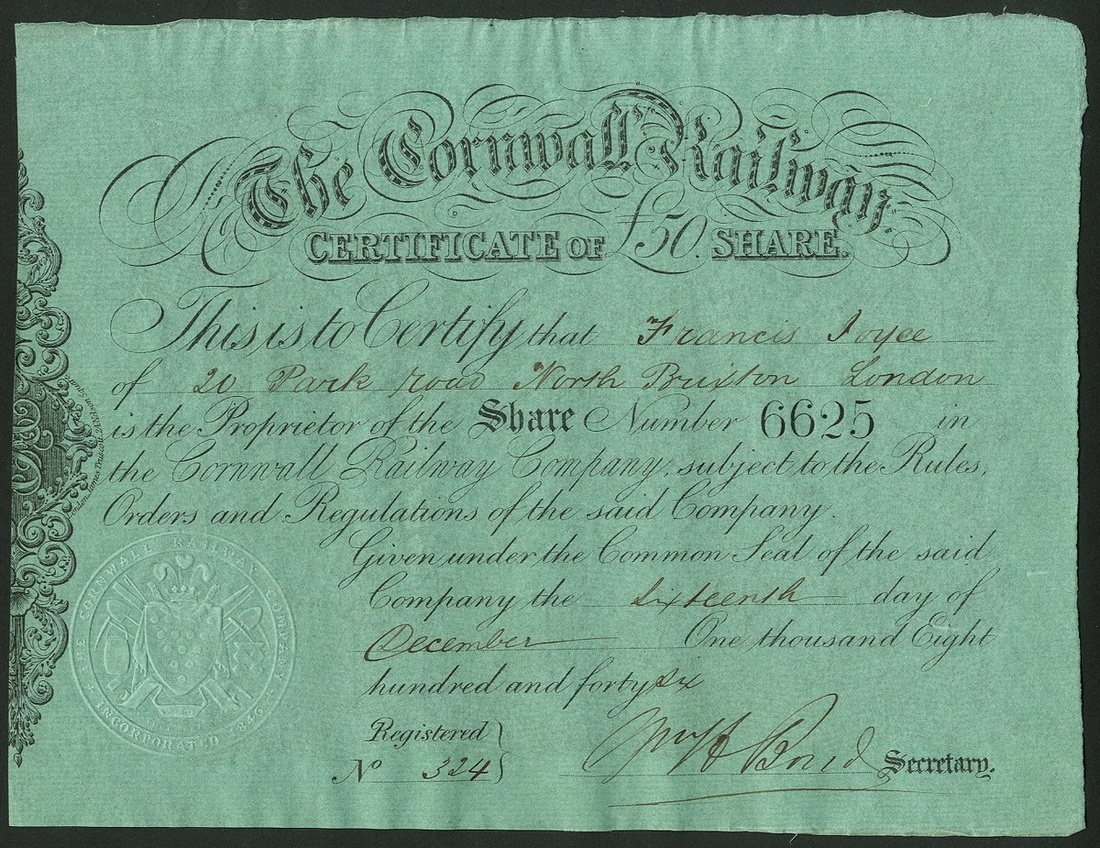 The Cornwall Railway.
CERTIFICATE OF £50. SHARE.
This is to Certify that Francis Joyce
of 20 Park road North Brixton London
is the Proprietor of the Share Number 6625 in
the Cornwall Railway Company, subject to the Rules,
Orders and Regulations of the said Company.
Given under the Common Seal of the said
Company the Sixteenth day of
December One thousand Eight
hundred and forty six
Registered
No 324
Wm H Bond Secretary.
THE CORNWALL RAILWAY COMPANY
INCORPORATED 1846